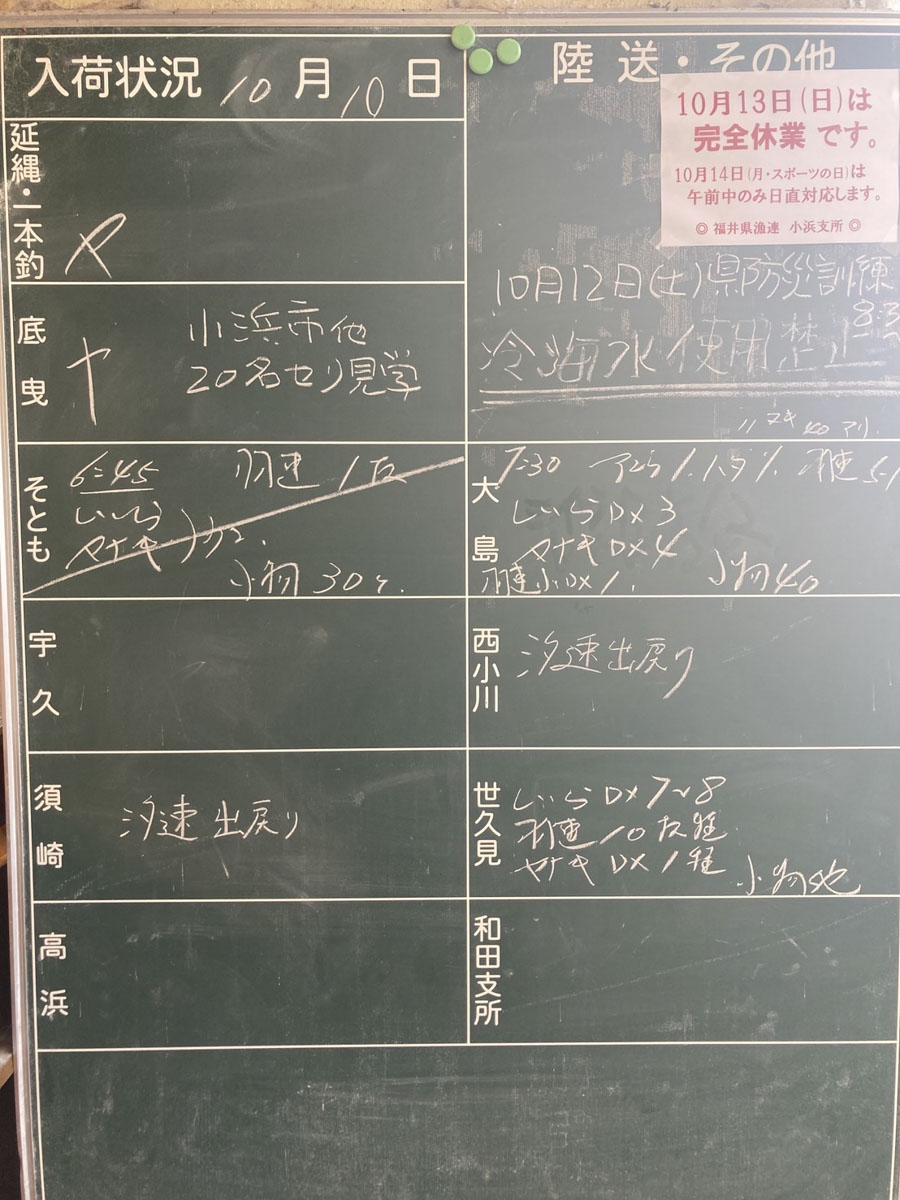 入荷状況 10月10日
陸送・その他
10月13日(日)は
完全休業 です。
10月14日(月・スポーツの日)は
午前中のみ日直対応します。
◎ 福井県漁連 小浜支所 ◎
延縄・一本釣
ヤ
10月12日(土)県防災訓練
冷海水使用禁止
底曳
ヤ
小浜市他
20名セリ見学
そとも
6:45
しいら
小物 30
大島
7:30
しいら DX 3
DX 4
小物 40
宇久
西小川
汐速出戻り
須崎
汐速出戻り
世久見
しいら DX 7~8
10
DX 1
小物他
高浜
和田支所